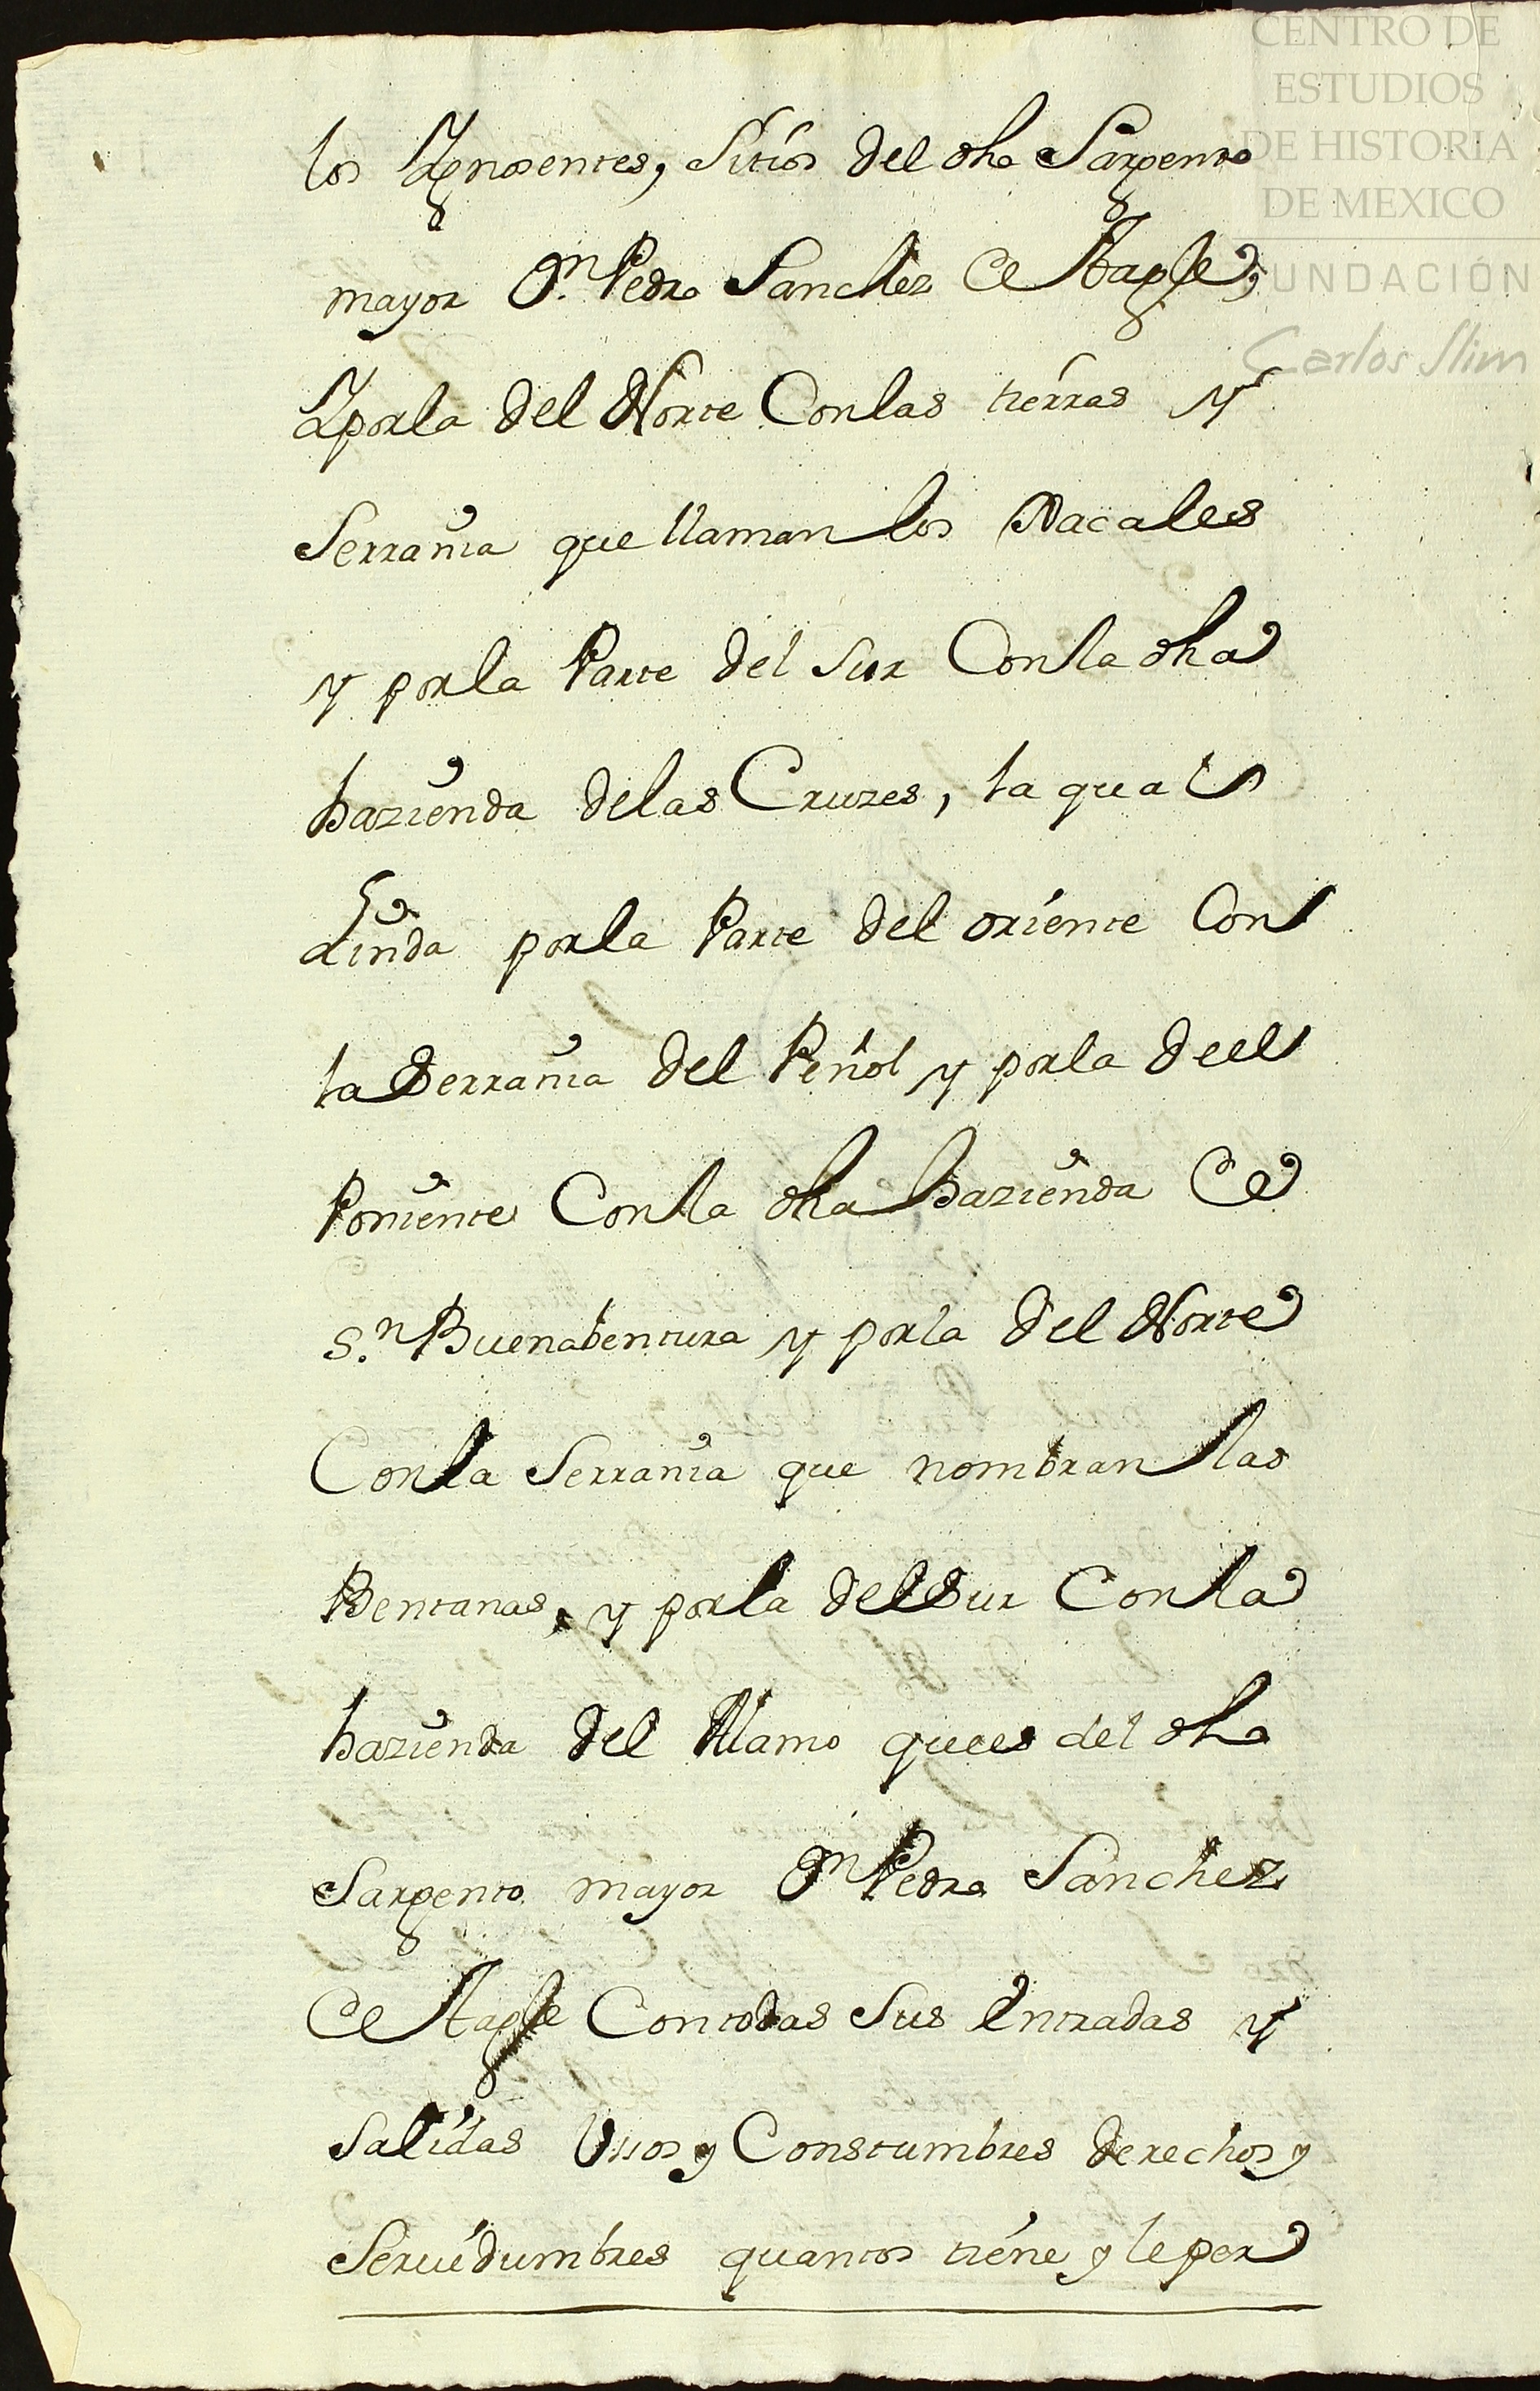 CENTRO DE
ESTUDIOS
DE HISTORIA
DE MEXICO
FUNDACIÓN
Carlos Slim
los Ygnosentes, Sitios del dho Sargento
mayor Dn. Pedro Sanchez de Tagle,
Y por la del Norte Con las tierras y
Serrania que llaman los Nacales
y por la Parte del Sur Con la dha
hazienda de las Cruzes, la qual
Linda por la Parte del oriente Con
la Serrania del Peñol y por la deel
Poniente Con la dha hazienda de
Sn. Buenabentura y por la del Norte
Con la Serrania que nombran las
Bentanas, y por la del Sur Con la
hazienda del Alamo que es del dho
Sargento mayor Dn Pedro Sanchez
de Tagle Con todas Sus entradas y
Salidas Usos y Constumbres derechos y
Seruidumbres quantos tiene y le per